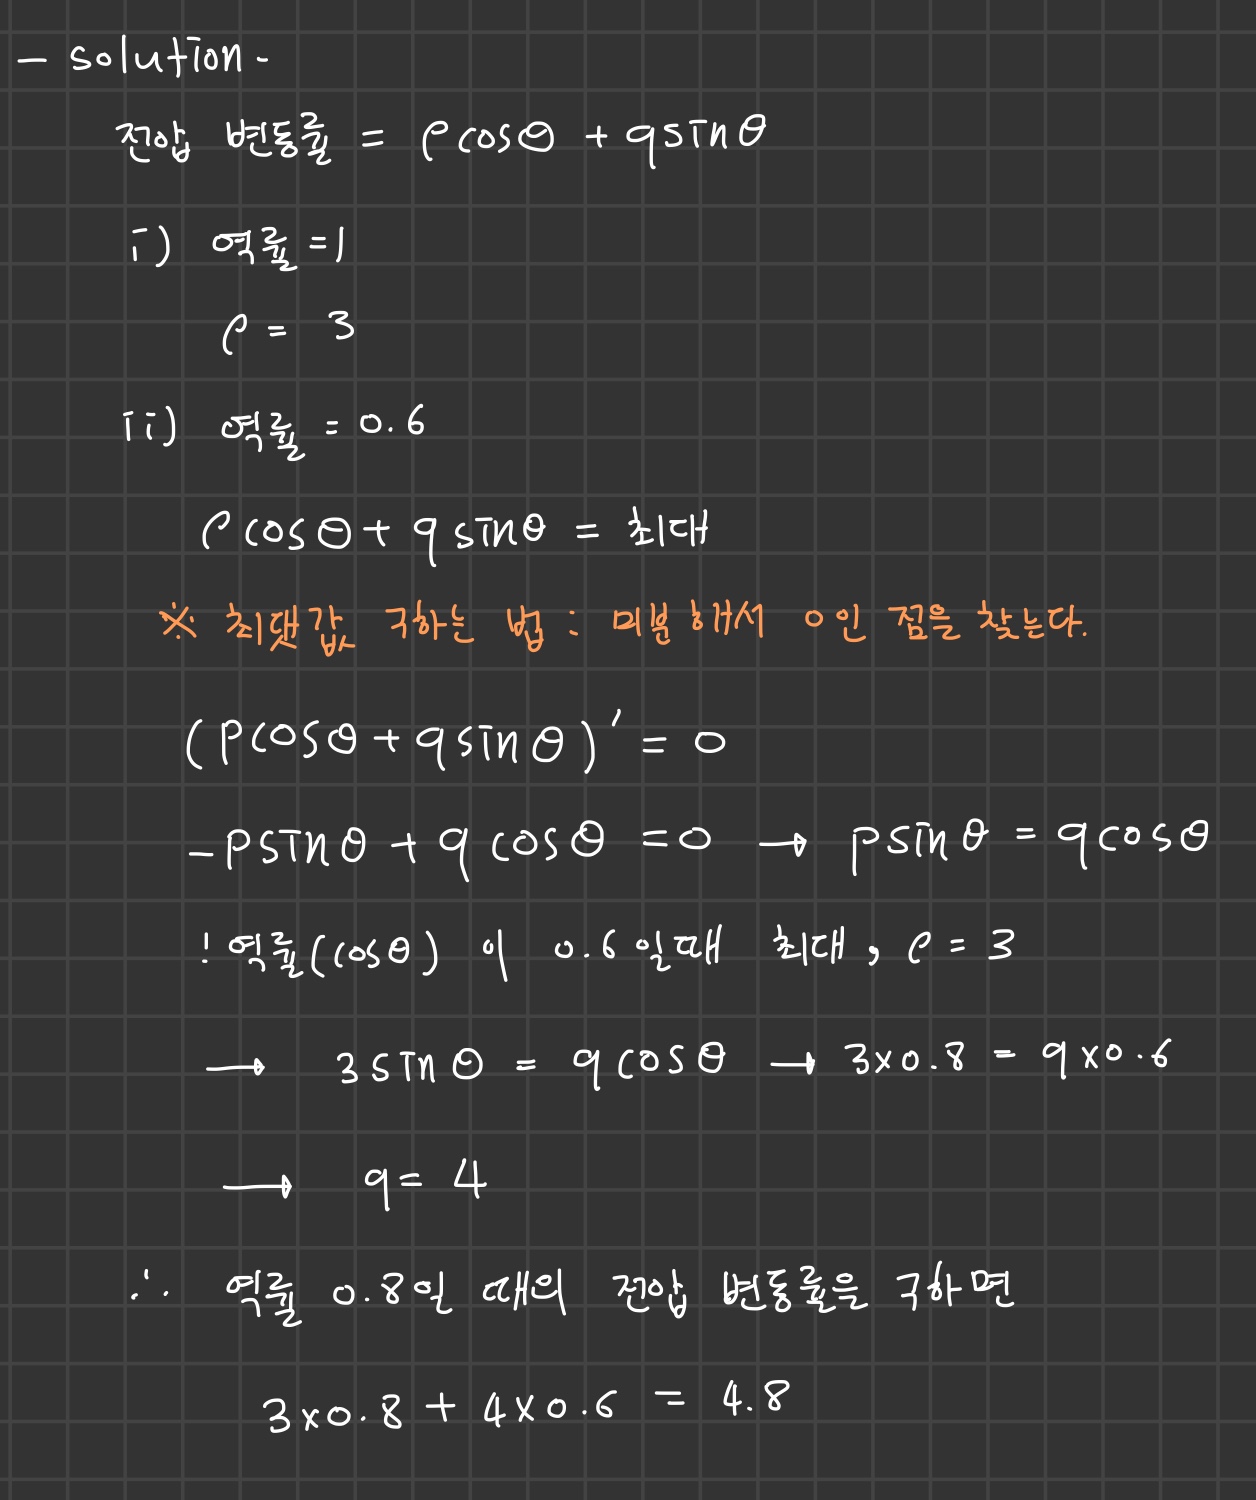 - solution -
전압 변동률 = pcosθ + qsinθ
i) 역률 = 1
p = 3
ii) 역률 = 0.6
pcosθ + qsinθ = 최대
※ 최댓값 구하는 법 : 미분해서 0인 점을 찾는다.
(pcosθ + qsinθ)' = 0
-psinθ + qcosθ = 0 → psinθ = qcosθ
! 역률(cosθ) 이 0.6 일때 최대, p = 3
→ 3sinθ = qcosθ → 3×0.8 = q×0.6
→ q = 4
∴ 역률 0.8일 때의 전압 변동률을 구하면
3×0.8 + 4×0.6 = 4.8